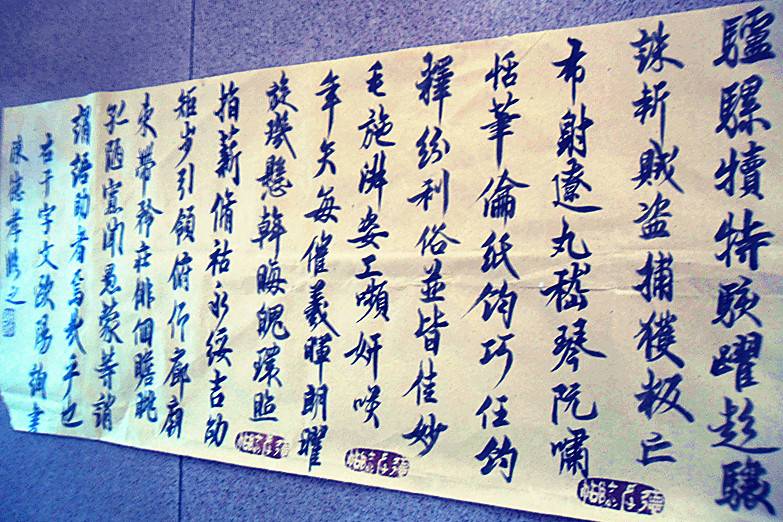 驢騾犢特駭躍超驤
誅斬賊盜捕獲叛亡
布射遼丸嵇琴阮嘯
恬筆倫紙鈞巧任鈞
釋紛利俗並皆佳妙
毛施淑姿工嚬妍咲
年矢每催羲暉朗曜
旋璣懸斡晦魄環照
指薪脩祜永綏吉劭
矩步引領俯仰廊廟
束帶矜莊俳佪瞻眺
孤陋寡聞愚蒙等誚
謂語助者焉哉乎也
右千字文歐陽詢書
陳